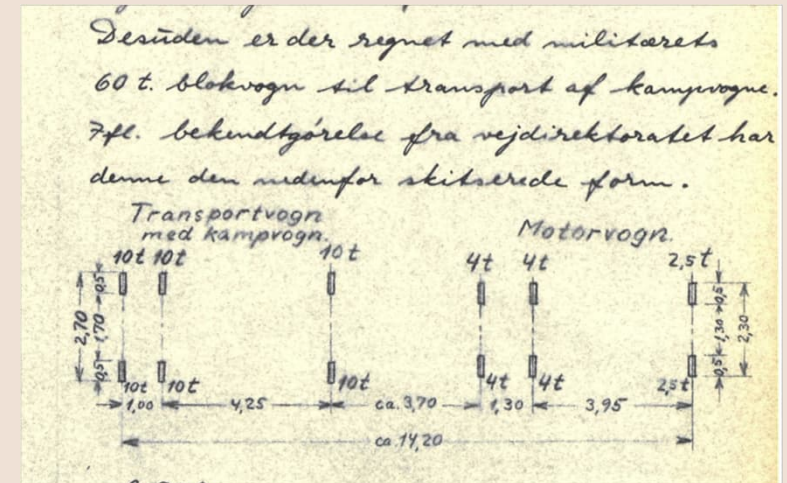 Desuden er der regnet med militærets
60 t. blokvogn til transport af kampvogne.
Ifl. bekendtgørelse fra vejdirektoratet har
denne den nedenfor skitserede form.
Transportvogn
med kampvogn.
Motorvogn.
10t 10t 10t 4t 4t 2,5t
2,70 0,5 1,70 0,5
0,5 1,30 0,5 2,30
10t 10t 10t 4t 4t 2,5t
1,00 4,25 ca. 3,70 1,30 3,95
ca 14,20